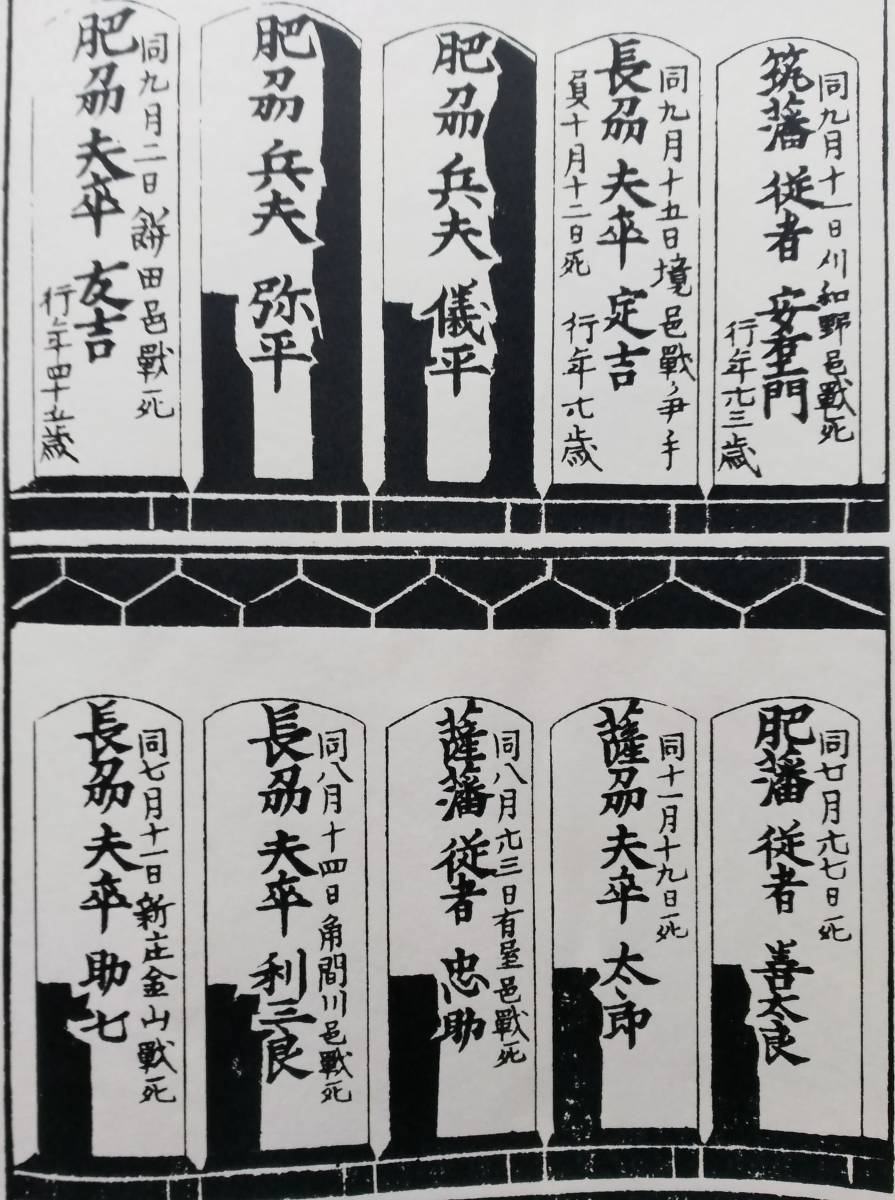 同九月十一日刈和野邑戰死
筑藩 従者 安右エ門
行年廾三歳
同九月十五日境邑戰争手
負十月十二日死
長刕 夫卒 定吉
行年廾歳
肥刕 兵夫 儀平
肥刕 兵夫 弥平
同九月二日餅田邑戰死
肥刕 夫卒 友吉
行年四十五歳
月廾七日死
肥藩 従者 善太良
同十一月十九日死
薩刕 夫卒 太郎
同八月廾三日有屋邑戰死
薩藩 従者 忠助
同八月十四日角間川邑戰死
長刕 夫卒 利三良
同七月十一日新庄金山戰死
長刕 夫卒 助七